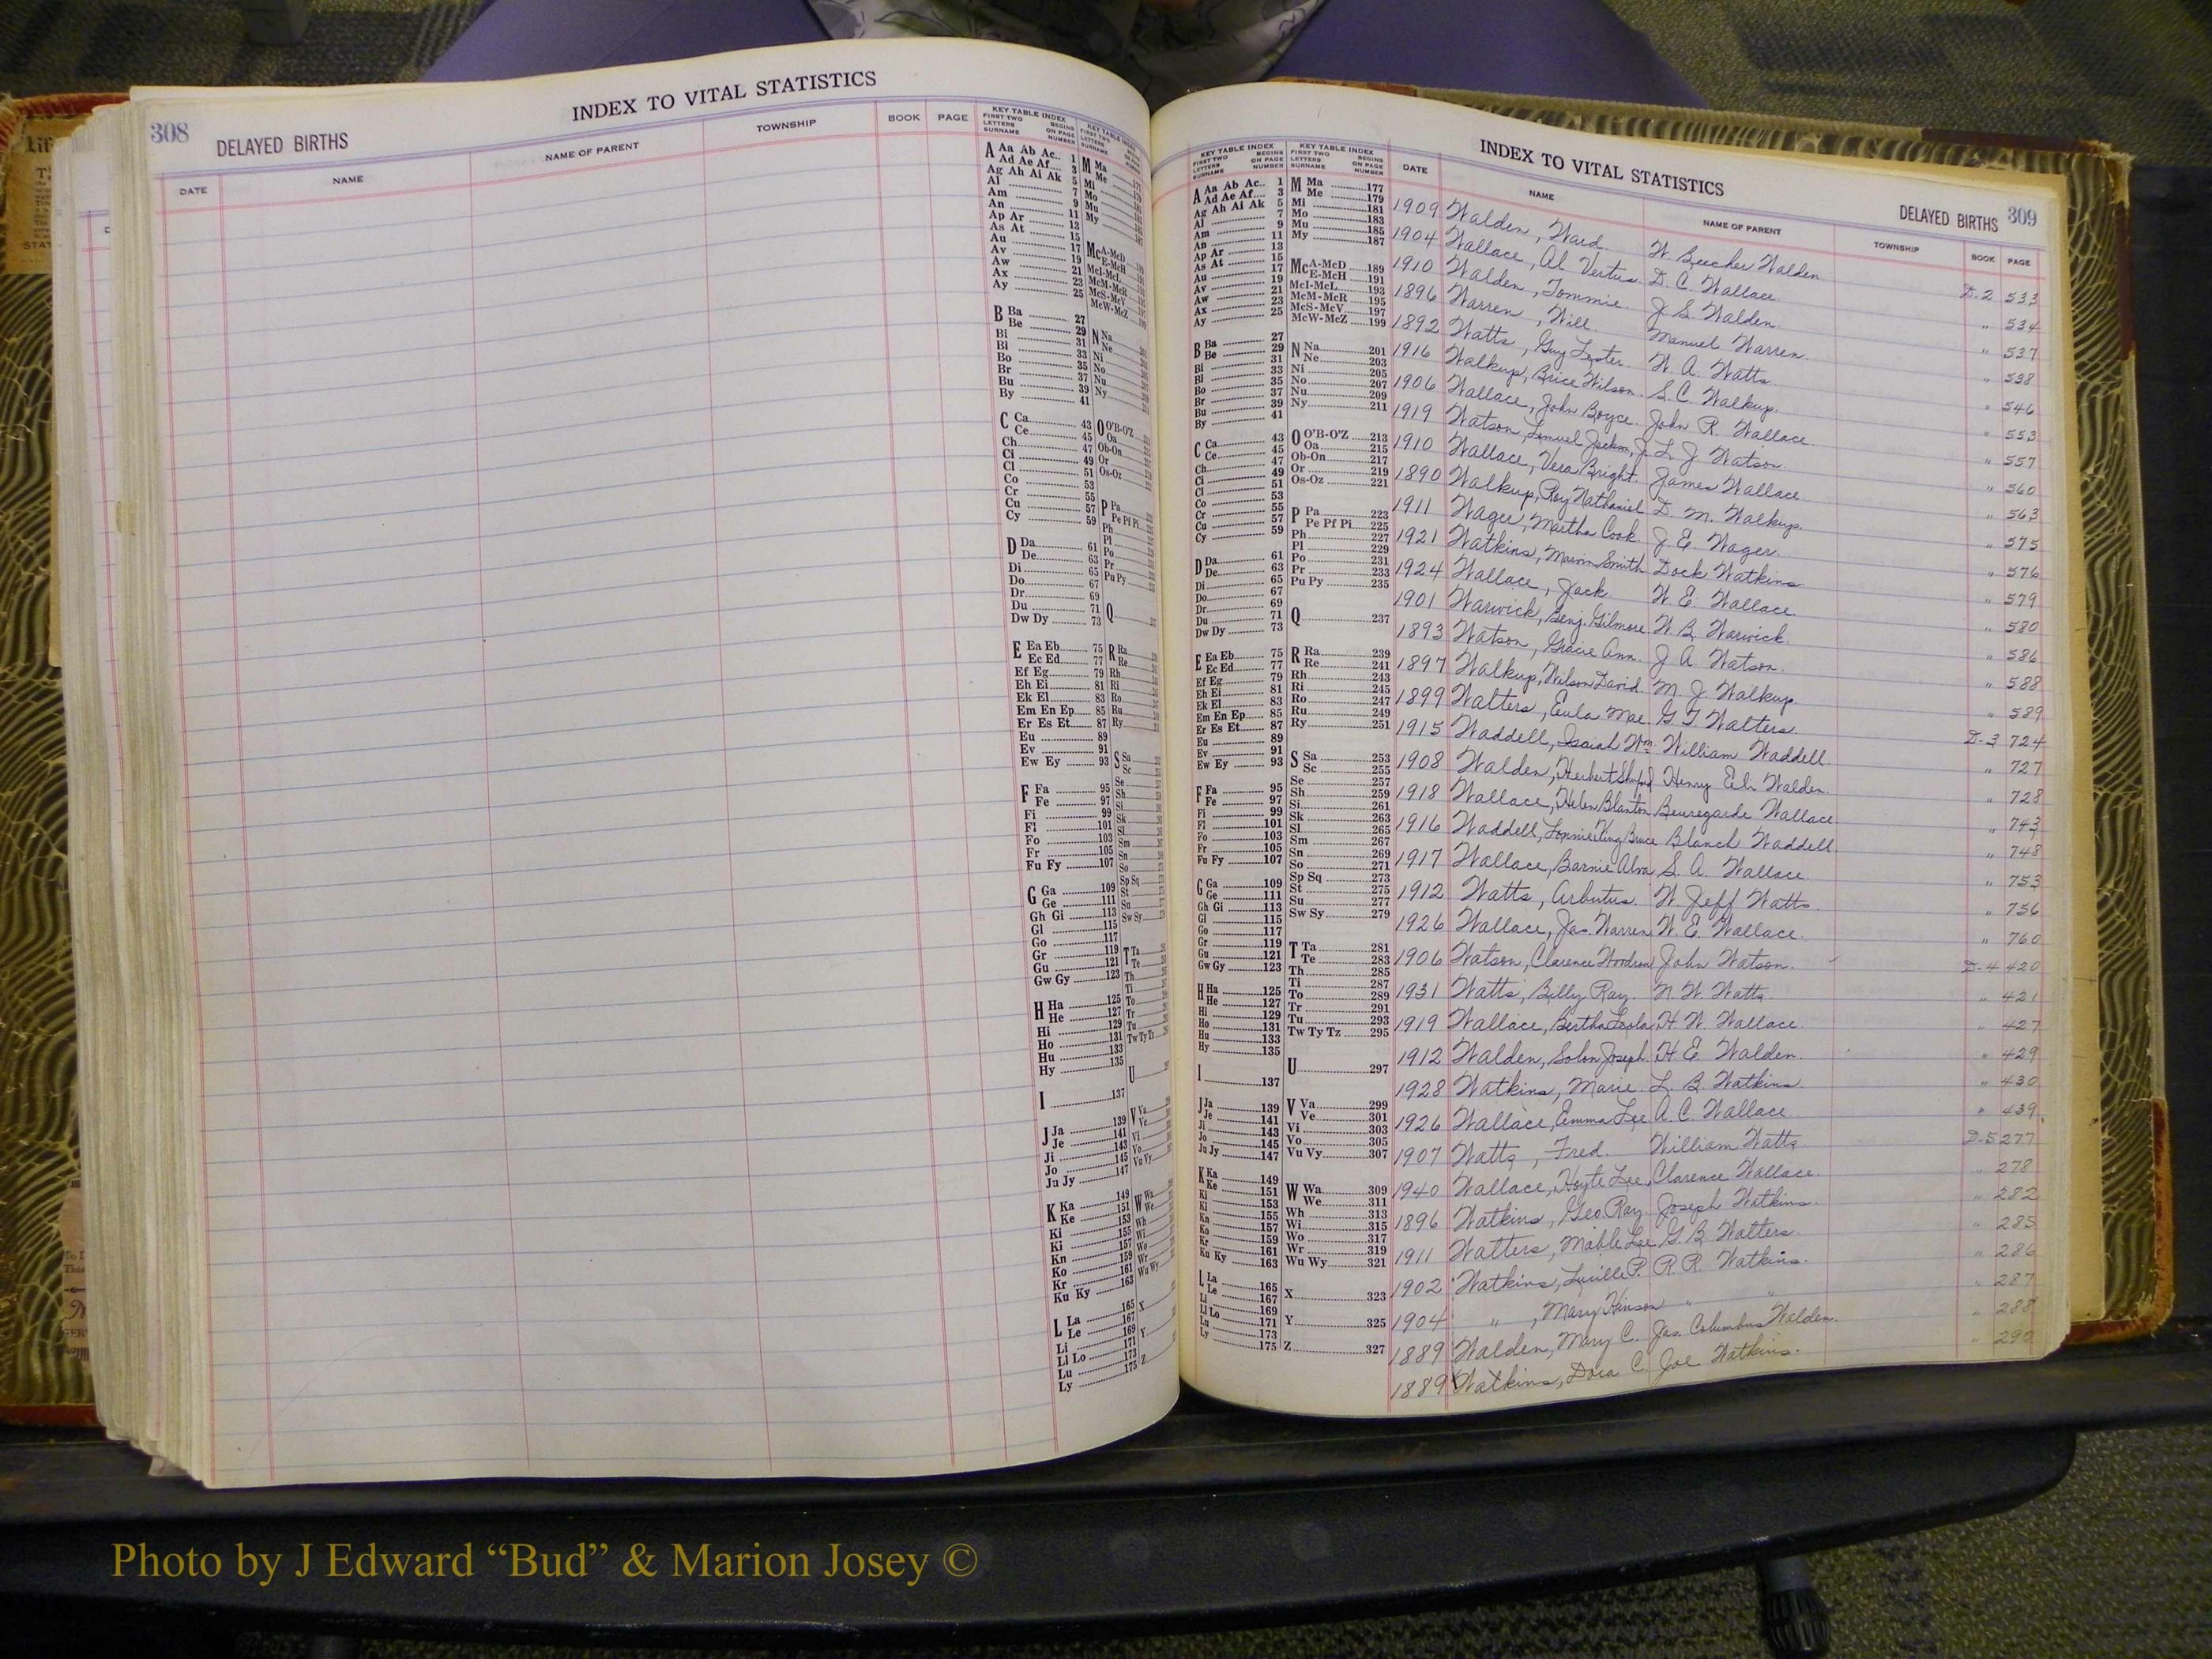 308
INDEX TO VITAL STATISTICS
DELAYED BIRTHS
DATE NAME NAME OF PARENT TOWNSHIP BOOK PAGE
KEY TABLE INDEX
FIRST TWO LETTERS SURNAME BEGINS ON PAGE NUMBER
A Aa Ab Ac 1
Ad Ae Af 3
Ag Ah Ai Ak 5
Al 7
Am 9
An 11
Ap Ar 13
As At 15
Au 17
Av 19
Aw 21
Ax 23
Ay 25
B Ba 27
Be 29
Bi 31
Bl 33
Bo 35
Br 37
Bu 39
By 41
C Ca 43
Ce 45
Ch 47
Ci 49
Cl 51
Co 53
Cr 55
Cu 57
Cy 59
D Da 61
De 63
Di 65
Do 67
Dr 69
Du 71
Dw Dy 73
E Ea Eb 75
Ec Ed 77
Ef Eg 79
Eh Ei 81
Ek El 83
Em En Ep 85
Er Es Et 87
Eu 89
Ev 91
Ew Ey 93
F Fa 95
Fe 97
Fi 99
Fl 101
Fo 103
Fr 105
Fu Fy 107
G Ga 109
Ge 111
Gh Gi 113
Gl 115
Go 117
Gr 119
Gu 121
Gw Gy 123
H Ha 125
He 127
Hi 129
Ho 131
Hu 133
Hy 135
I 137
J Ja 139
Je 141
Ji 143
Jo 145
Ju Jy 147
K Ka 149
Ke 151
Ki 153
Kl 155
Kn 157
Ko 159
Kr 161
Ku Ky 163
L La 165
Le 167
Li 169
Ll Lo 171
Lu 173
Ly 175
INDEX TO VITAL STATISTICS
DELAYED BIRTHS 309
KEY TABLE INDEX
FIRST TWO LETTERS SURNAME BEGINS ON PAGE NUMBER
M Ma 177
Me 179
Mi 181
Mo 183
Mu 185
My 187
Mc A-McD 189
E-McH 191
McI-McL 193
McM-McR 195
McS-McV 197
McW-McZ 199
N Na 201
Ne 203
Ni 205
No 207
Nu 209
Ny 211
O O'B-O'Z 213
Oa 215
Ob-On 217
Or 219
Os-Oz 221
P Pa 223
Pe Pf Pi 225
Ph 227
Pl 229
Po 231
Pr 233
Pu Py 235
Q 237
R Ra 239
Re 241
Rh 243
Ri 245
Ro 247
Ru 249
Ry 251
S Sa 253
Sc 255
Se 257
Sh 259
Si 261
Sk 263
Sl 265
Sm 267
Sn 269
So 271
Sp Sq 273
St 275
Su 277
Sw Sy 279
T Ta 281
Te 283
Th 285
Ti 287
To 289
Tr 291
Tu 293
Tw Ty Tz 295
U 297
V Va 299
Ve 301
Vi 303
Vo 305
Vu Vy 307
W Wa 309
We 311
Wh 313
Wi 315
Wo 317
Wr 319
Wu Wy 321
X 323
Y 325
Z 327
DATE NAME NAME OF PARENT TOWNSHIP BOOK PAGE
1909 Walden, Ward. W. Beecher Walden. D-2 533
1904 Wallace, Al Vertus. D. C. Wallace. " 534
1910 Walden, Tommie. J. S. Walden. " 537
1896 Warren, Will. Manuel Warren. " 538
1892 Watts, Guy Lester. W. A. Watts. " 546
1916 Walkup, Brice Wilson. S. C. Walkup. " 553
1906 Wallace, John Boyce. John R. Wallace. " 557
1919 Watson, Lemuel Jackson, Jr. L. J. Watson. " 560
1910 Wallace, Vera Bright. James Wallace. " 563
1890 Walkup, Roy Nathaniel D. M. Walkup. " 575
1911 Wager, Martha Cook. J. E. Wager. " 576
1921 Watkins, Marvin Smith Dock Watkins. " 579
1924 Wallace, Jack. W. E. Wallace. " 580
1901 Warwick, Benj. Gilmore. W. B. Warwick. " 586
1893 Watson, Gracie Ann. J. A. Watson. " 588
1897 Walkup, Wilson David. M. J. Walkup. " 589
1899 Walters, Eula Mae. G. T. Walters. D-3 724
1915 Waddell, Isaiah Wm. William Waddell. " 727
1908 Walden, Herbert Henry Eli Walden. " 728
1918 Wallace, Helen Blanton Beuregarde Wallace. " 743
1916 Waddell, Lonnie King Bruce Blanch Waddell. " 748
1917 Wallace, Barnie Alva S. A. Wallace. " 753
1912 Watts, Arbutus. W. Jeff Watts. " 756
1926 Wallace, Jas. Warren W. E. Wallace. " 760
1906 Watson, Clarence Woodrow John Watson. D-4 420
1931 Watts, Billy Ray. N. W. Watts. " 421
1919 Wallace, Bertha Leola. H. W. Wallace. " 427
1912 Walden, Solon Joseph. H. E. Walden. " 429
1928 Watkins, Marie. L. B. Watkins. " 430
1926 Wallace, Emma Lee A. C. Wallace. " 439
1907 Watts, Fred. William Watts D-5 277
1940 Wallace, Hoyte Lee. Clarence Wallace. " 278
1896 Watkins, Geo. Ray. Joseph Watkins. " 282
1911 Walters, Mable Lee G. B. Walters. " 285
1902 Watkins, Lucille P. R. R. Watkins. " 286
1904 ", Mary Hinson " " " 287
1889 Walden, Mary C. Jas. Columbus Walden. " 288
1889 Watkins, Dora C. Joe Watkins. " 290
Photo by J Edward “Bud” & Marion Josey ©